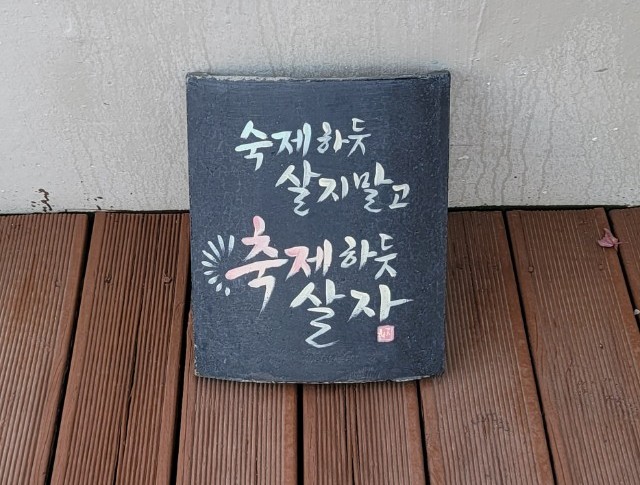 숙제하듯
살지말고
축제하듯
살자